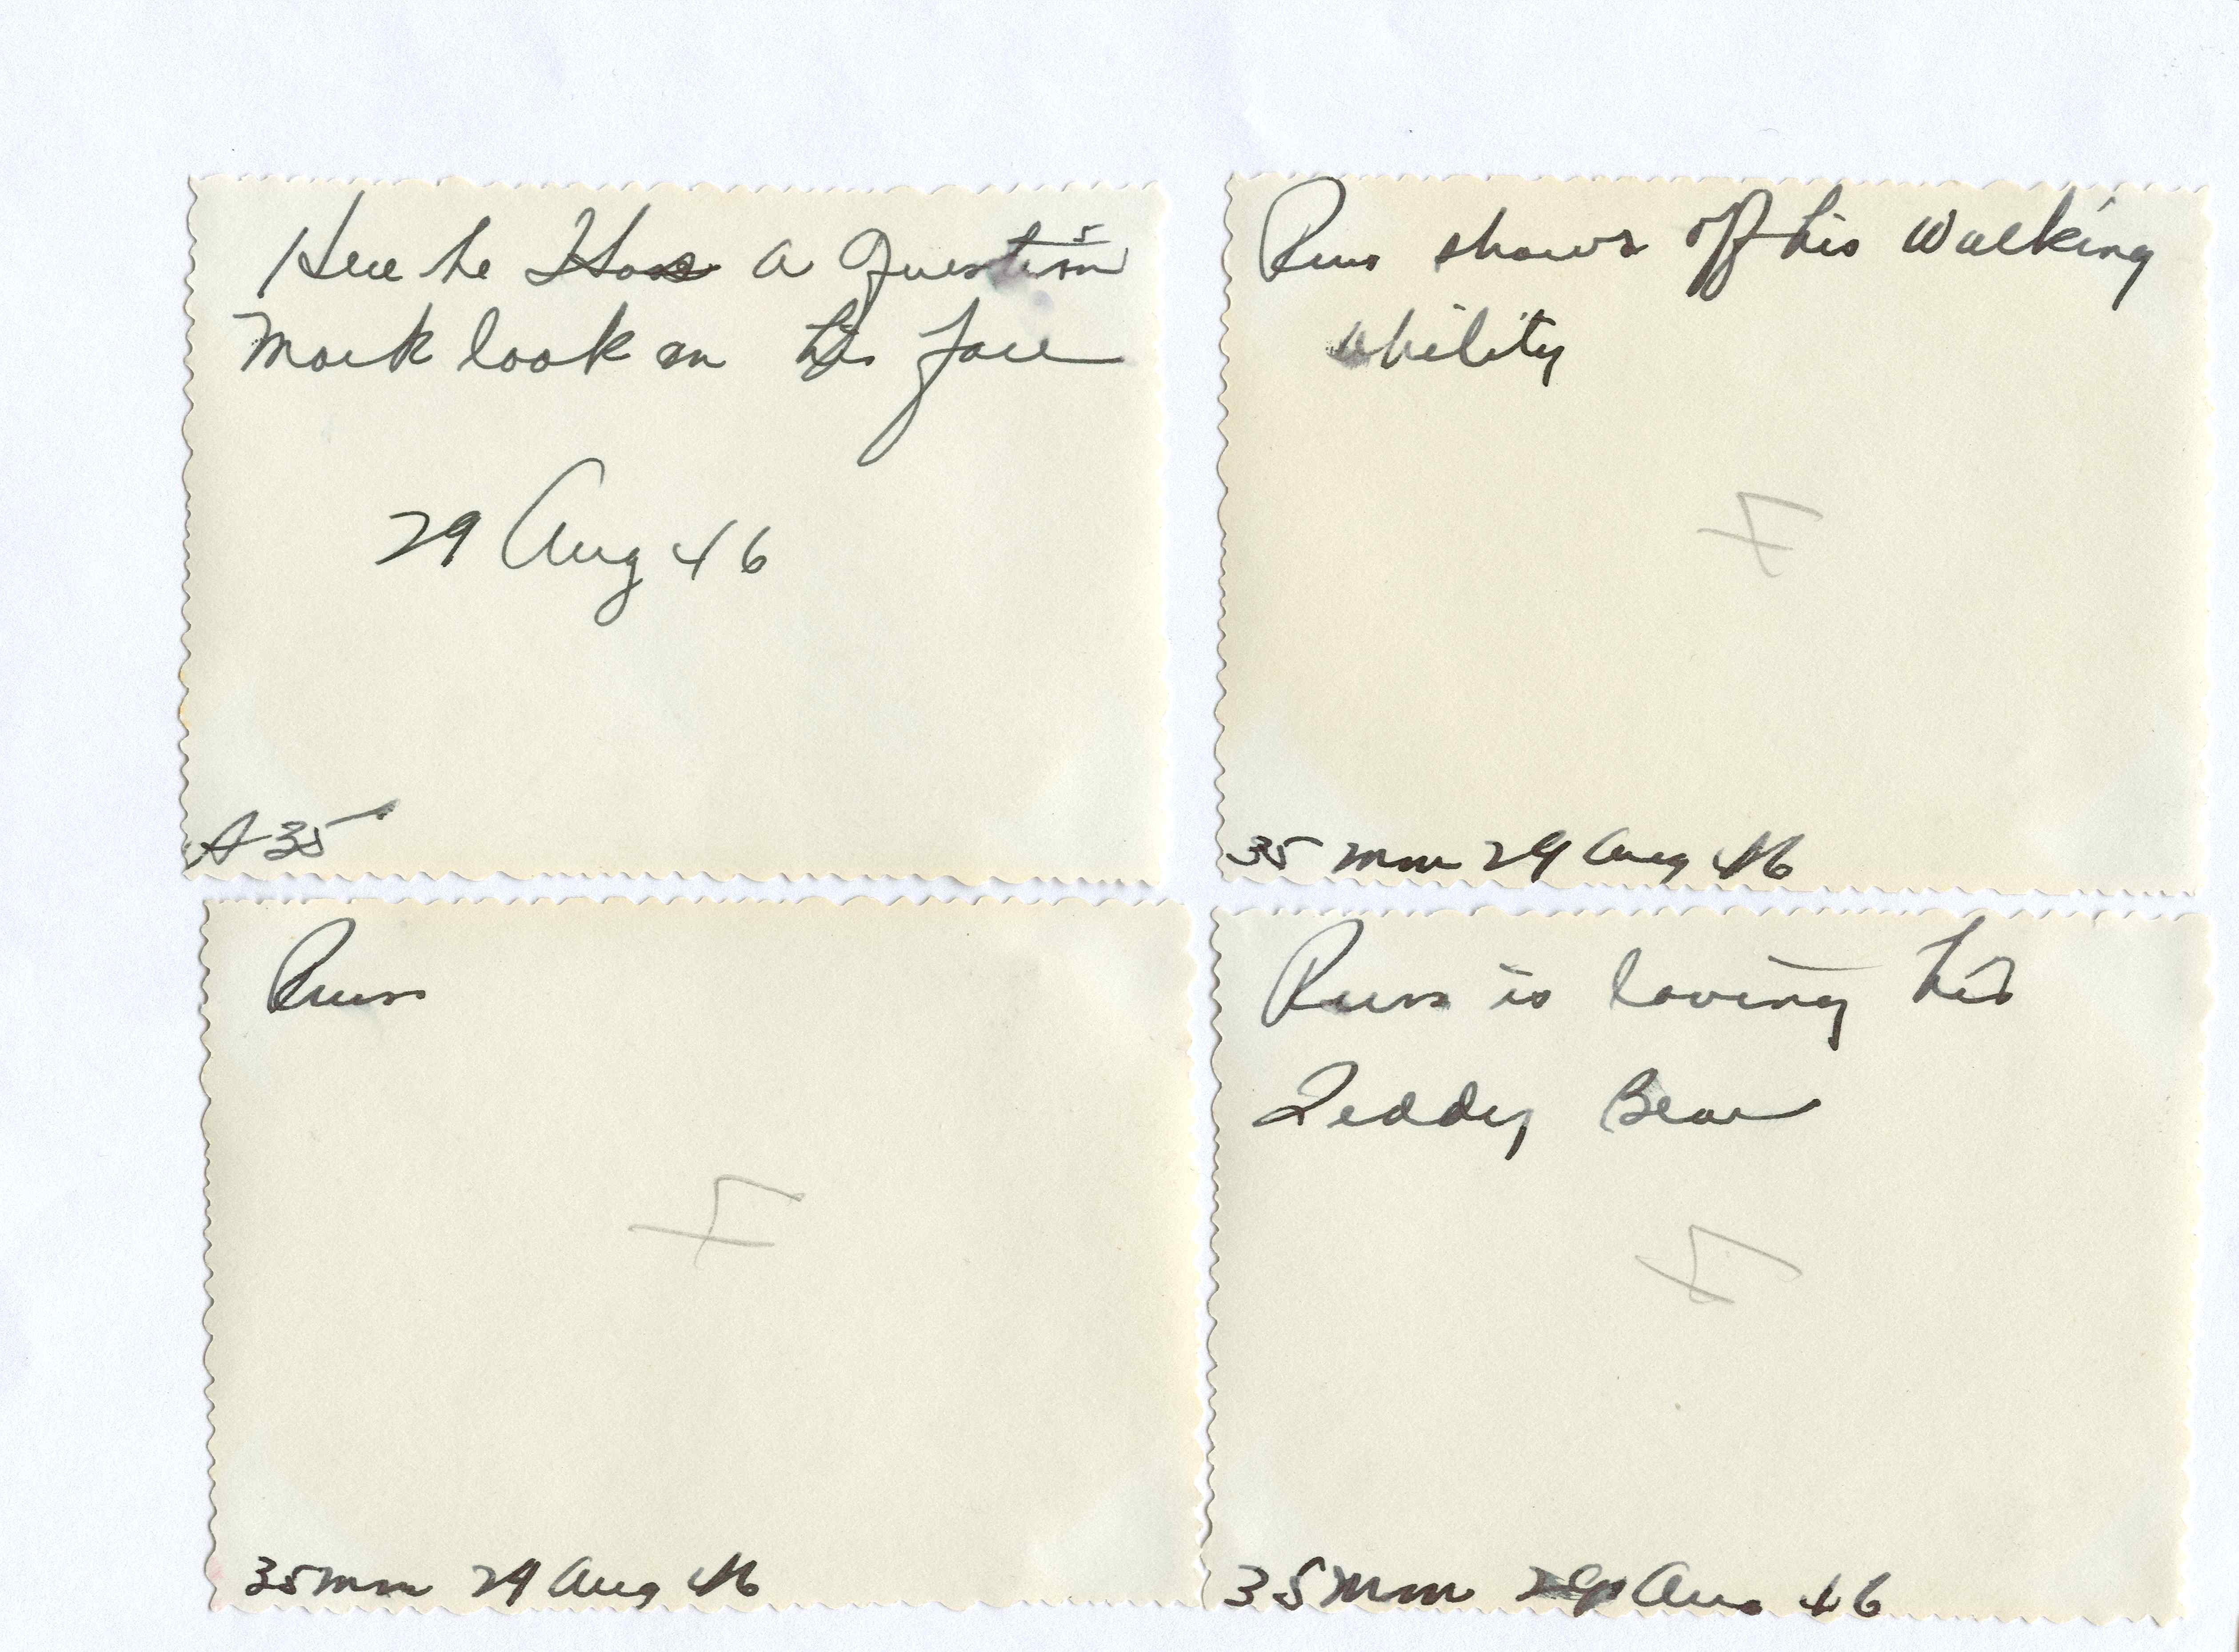 Here he Has a Question
Mark look on his face
29 Aug 46
A 35
Russ shows off his Walking
ability
35 mm 29 Aug 46
Russ
35mm 29 Aug 46
Russ is loving his
Teddy Bear
35mm 29 Aug 46